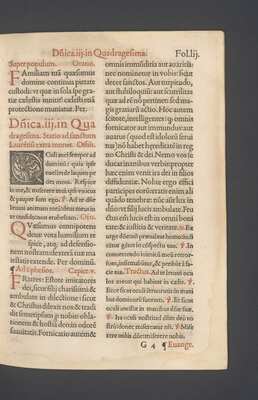 Dñica.iij.in Quadragesima. Fol.lij.
Super populum. Oratio.
FAmiliam tuã quæsumus
domine continua pietate
custodi: vt quæ in sola spe gra
tiæ cælestis innititur cælesti etiã
protectione muniatur. Per.
Dñica.iij.in Qua
dragesima. Statio ad sanctum
Laurẽtiũ extra muros. Offiũ.
OCuli mei semper ad
dominũ: quia ipse
euellet de laqueo pe
des meos. Respice
in me, & miserere mei: quoniã vnicus
& pauper sum ego. Ad te dñe
leuaui animam meã: deus meus in
te confido, non erubescam.
QVæsumus omnipotens
deus vota humilium re
spice, atq; ad defensio
nem nostram dexterã tuæ ma
iestatis extende. Per dominũ.
¶Ad Ephesios. Capite.v.
FRatres: Estote imitatores
dei, sicut filij charissimi: &
ambulate in dilectione: sicut
& Christus dilexit nos: & tradi
dit semetipsum pro nobis obla
tionem & hostiã deo in odorẽ
suauitatis. Fornicatio autem &
omnis immunditia aut auaritia:
nec nominetur in vobis: sicut
decet sanctos. Aut turpitudo,
aut stultiloquiũ aut scurrilitas
quæ ad rẽ nõ pertinet: sed ma
gis gratiarũ actio. Hoc autem
scitote, intelligentes: q omnis
fornicator aut immundus aut
auarus (quod est idolorũ serui
tus) nõ habet hereditatẽ in reg
no Christi & dei. Nemo vos
ducat inanibus verbis: propter
hæc enim venit ira dei in filios
diffidentiæ. Nolite ergo effici
participes eorum: eratis enim ali
quãdo tenebræ: nũc aũt lux in
dño: vt filij lucis ambulate. Fru
ctus em̃ lucis est in omni boni
tate: & iustitia & veritate.
Exurge dñe nõ præualeat homo: iudi
centur gẽtes in cõspectu tuo. In
conuertendo inimicũ meũ retror
sum, infirmabunt, & peribũt à fa
cie tua. Tractus. Ad te leuaui ocu
los meos: qui habitas in cælis.
Ecce sicut oculi seruorum in mani
bus dominorũ suorum. Et sicut
oculi ancillæ in manibus dominæ
suæ. Ita oculi nostri ad dñm deũ no
strũ: donec misereatur nr̃i. Mise
rere nobis dñe: miserere nobis.
G 4 ¶Euange.